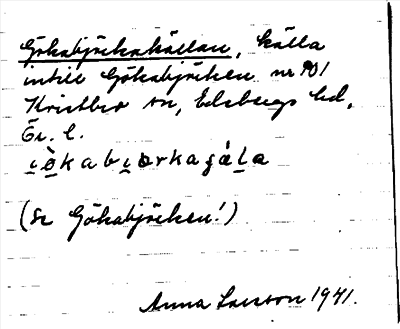 Gökabjörkakällan, källa
intill Gökabjörken nr 901
Kristberg sn, Edsbergs hd,
Ör. l.
(Se Gökabjörken!)
Anna Larsson 1941.